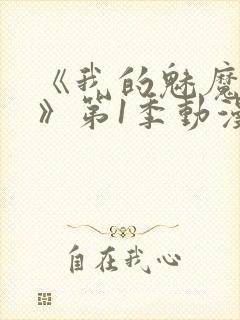 《我的魅魔
》第1季動漫
自在我心